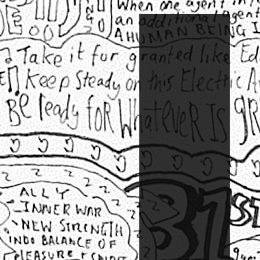 When one agent in
an additional Agent
A HUMAN BEING I
Take it for granted like Ed
Keep Steady on this Electric A
Be ready for Whatever IS GR
ALLY
INNER WAR
NEW STRENGTH
INDO BALANCE OF
PLEASURE
31ST